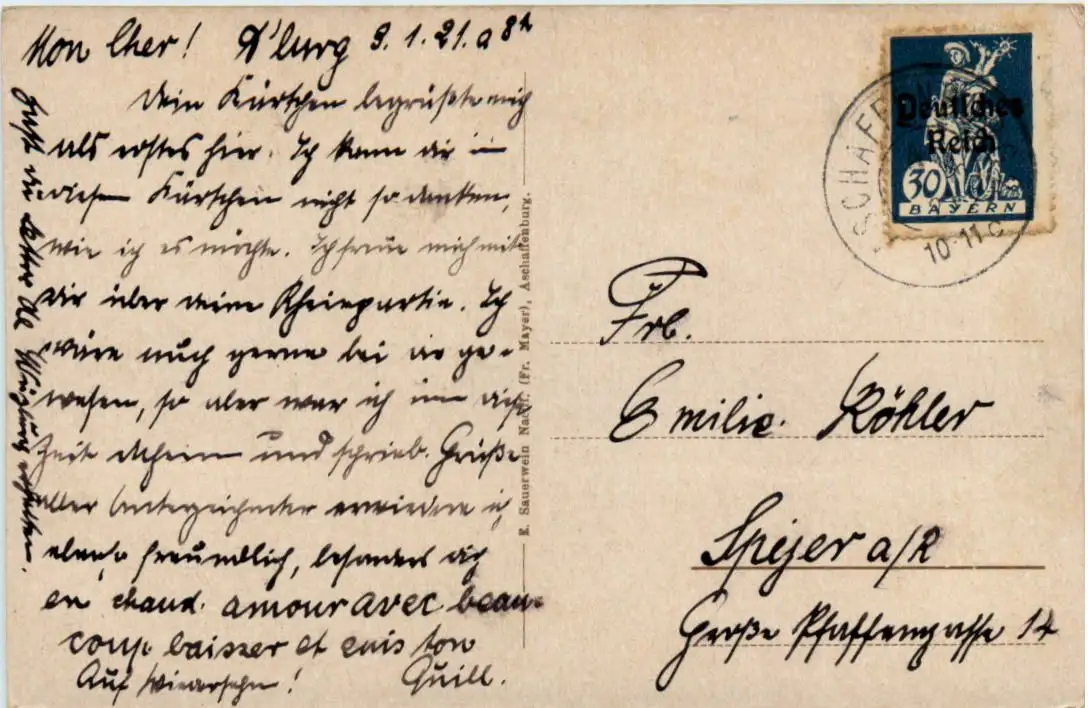 Mon Cher! A'burg 9.1.21. a 8h
Dein Kärtchen begrüßte mich
als erstes hier. Ich kann dir in
diesem Kärtchen nicht so danken,
wie ich es möchte. Ich freue mich mit
dir über deine Rheinpartie. Ich
wäre auch gerne bei dir ge-
wesen, so aber war ich um diese
Zeit daheim und schrieb. Grüße
aller Unterzeichneter erwiedere ich
ebenso freundlich, besonders dich
en chaud. amour avec beau-
coup baisser et suis ton
Auf Wiedersehn! Quill.
Hast du erhalten.
E. Sauerwein Nachf. (Fr. Mayer), Aschaffenburg.
Deutsches
Reich
30
BAYERN
ASCHAFFEN
10-11
Frl.
Emilie. Köhler
Speyer a/R
Große Pfaffengasse 14